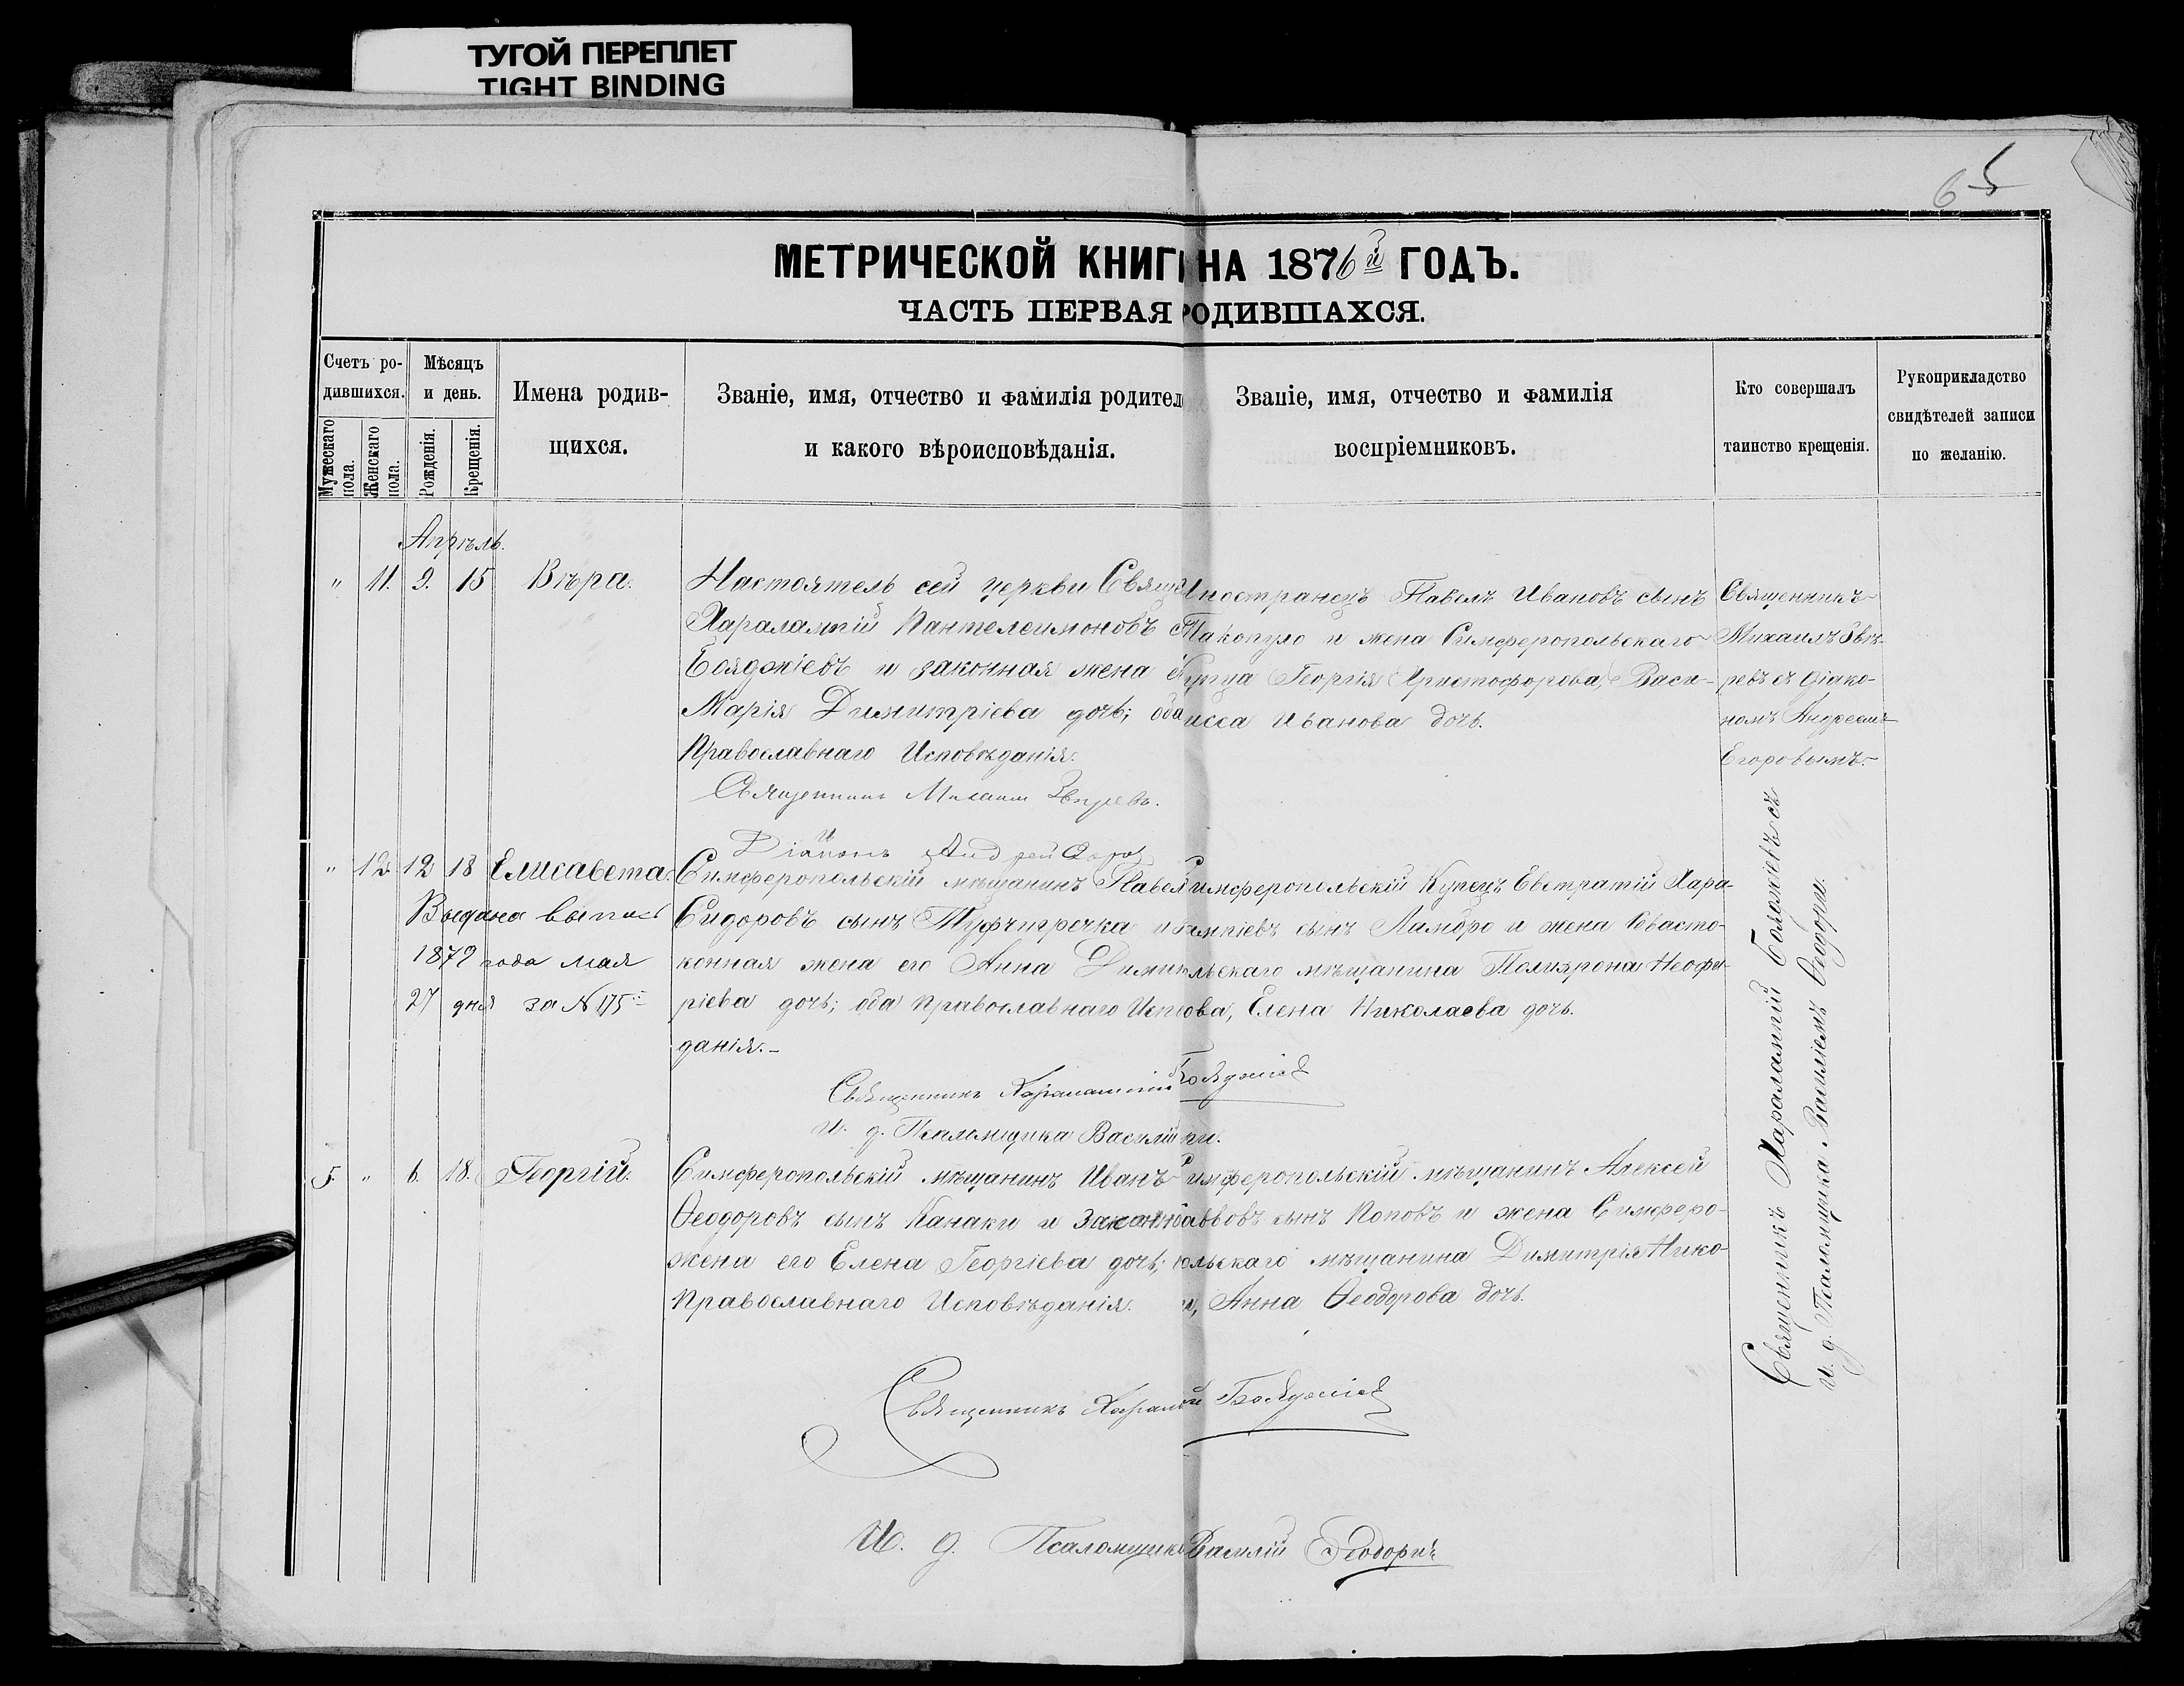 ТУГОЙ ПЕРЕПЛЕТ
TIGHT BINDING
65
МЕТРИЧЕСКОЙ КНИГИ НА 1876й ГОДЪ.
ЧАСТЬ ПЕРВАЯ РОДИВШАХСЯ.
Счетъ ро-
дившихся.
Мужескаго пола.
Женскаго пола.
Мѣсяцъ
и день.
Рожденія.
Крещенія.
Имена родив-
шихся.
Званіе, имя, отчество и фамилія родител
и какого вѣроисповѣданія.
Званіе, имя, отчество и фамилія
воспріемниковъ.
Кто совершалъ
таинство крещенія.
Рукоприкладство
свидѣтелей записи
по желанію.
Апрѣль.
" 11. 9. 15 Вѣра.
Настоятель сей церкви Свяще
Харалампій Пантелеимоновъ с
Бояджіевъ и законная жена е
Марія Димитріева дочь; оба
Православнаго Исповѣданія.
Священникъ Михаилъ Звѣревъ.
Діаконъ Андрей
Иностранецъ Павелъ Ивановъ сынъ
Такопуло и жена Симферопольскаго
купца Георгія Христофорова, Васи-
исса Иванова дочь.
Священникъ
Михаилъ Звѣ-
ревъ съ діако-
номъ Андреемъ
Егоровымъ.
" 12. 12 18 Елисавета.
Выдана выпись
1872 года мая
27 дня за № 175
Симферопольскій мѣщанинъ Павел
Сидоровъ сынъ Туфчигречка и
конная жена его Анна Димит
ріева дочь; оба Православнаго Испо
данія.-
Священникъ Харалампій Бояджіев
И. д. Псаломщика Василій
имферопольскій Купецъ Евстратій Хара-
ампіевъ сынъ Ламбро и жена Севасто-
льскаго мѣщанина Поликрона Неофи-
ова, Елена Николаева дочь.
5. " 6. 18. Георгій.
Симферопольскій мѣщанинъ Иванъ
Ѳеодоровъ сынъ Канаки и законн
жена его Елена Георгіева дочь;
Православнаго Исповѣданія.
имферопольскій мѣщанинъ Алексей
аввовъ сынъ Поповъ и жена Симферо-
ольскаго мѣщанина Димитрія Нико-
Анна Ѳеодорова дочь.
Священникъ Харалампій Бояджіевъ съ
и. д. Псаломщика Василіемъ Ѳеодори.
Священникъ Харалам Бояджіев
И. д. Псаломщика Василій Ѳеодори